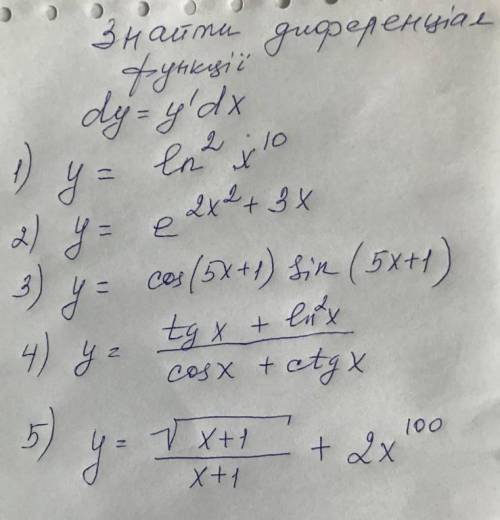 Знайти диференціал
функції
dy = y'dx
1) y = ln² x¹⁰
2) y = e^(2x² + 3x)
3) y = cos(5x+1) sin(5x+1)
4) y = (tg x + ln²x)/(cosx + ctg x)
5) y = √(x+1)/(x+1) + 2x¹⁰⁰